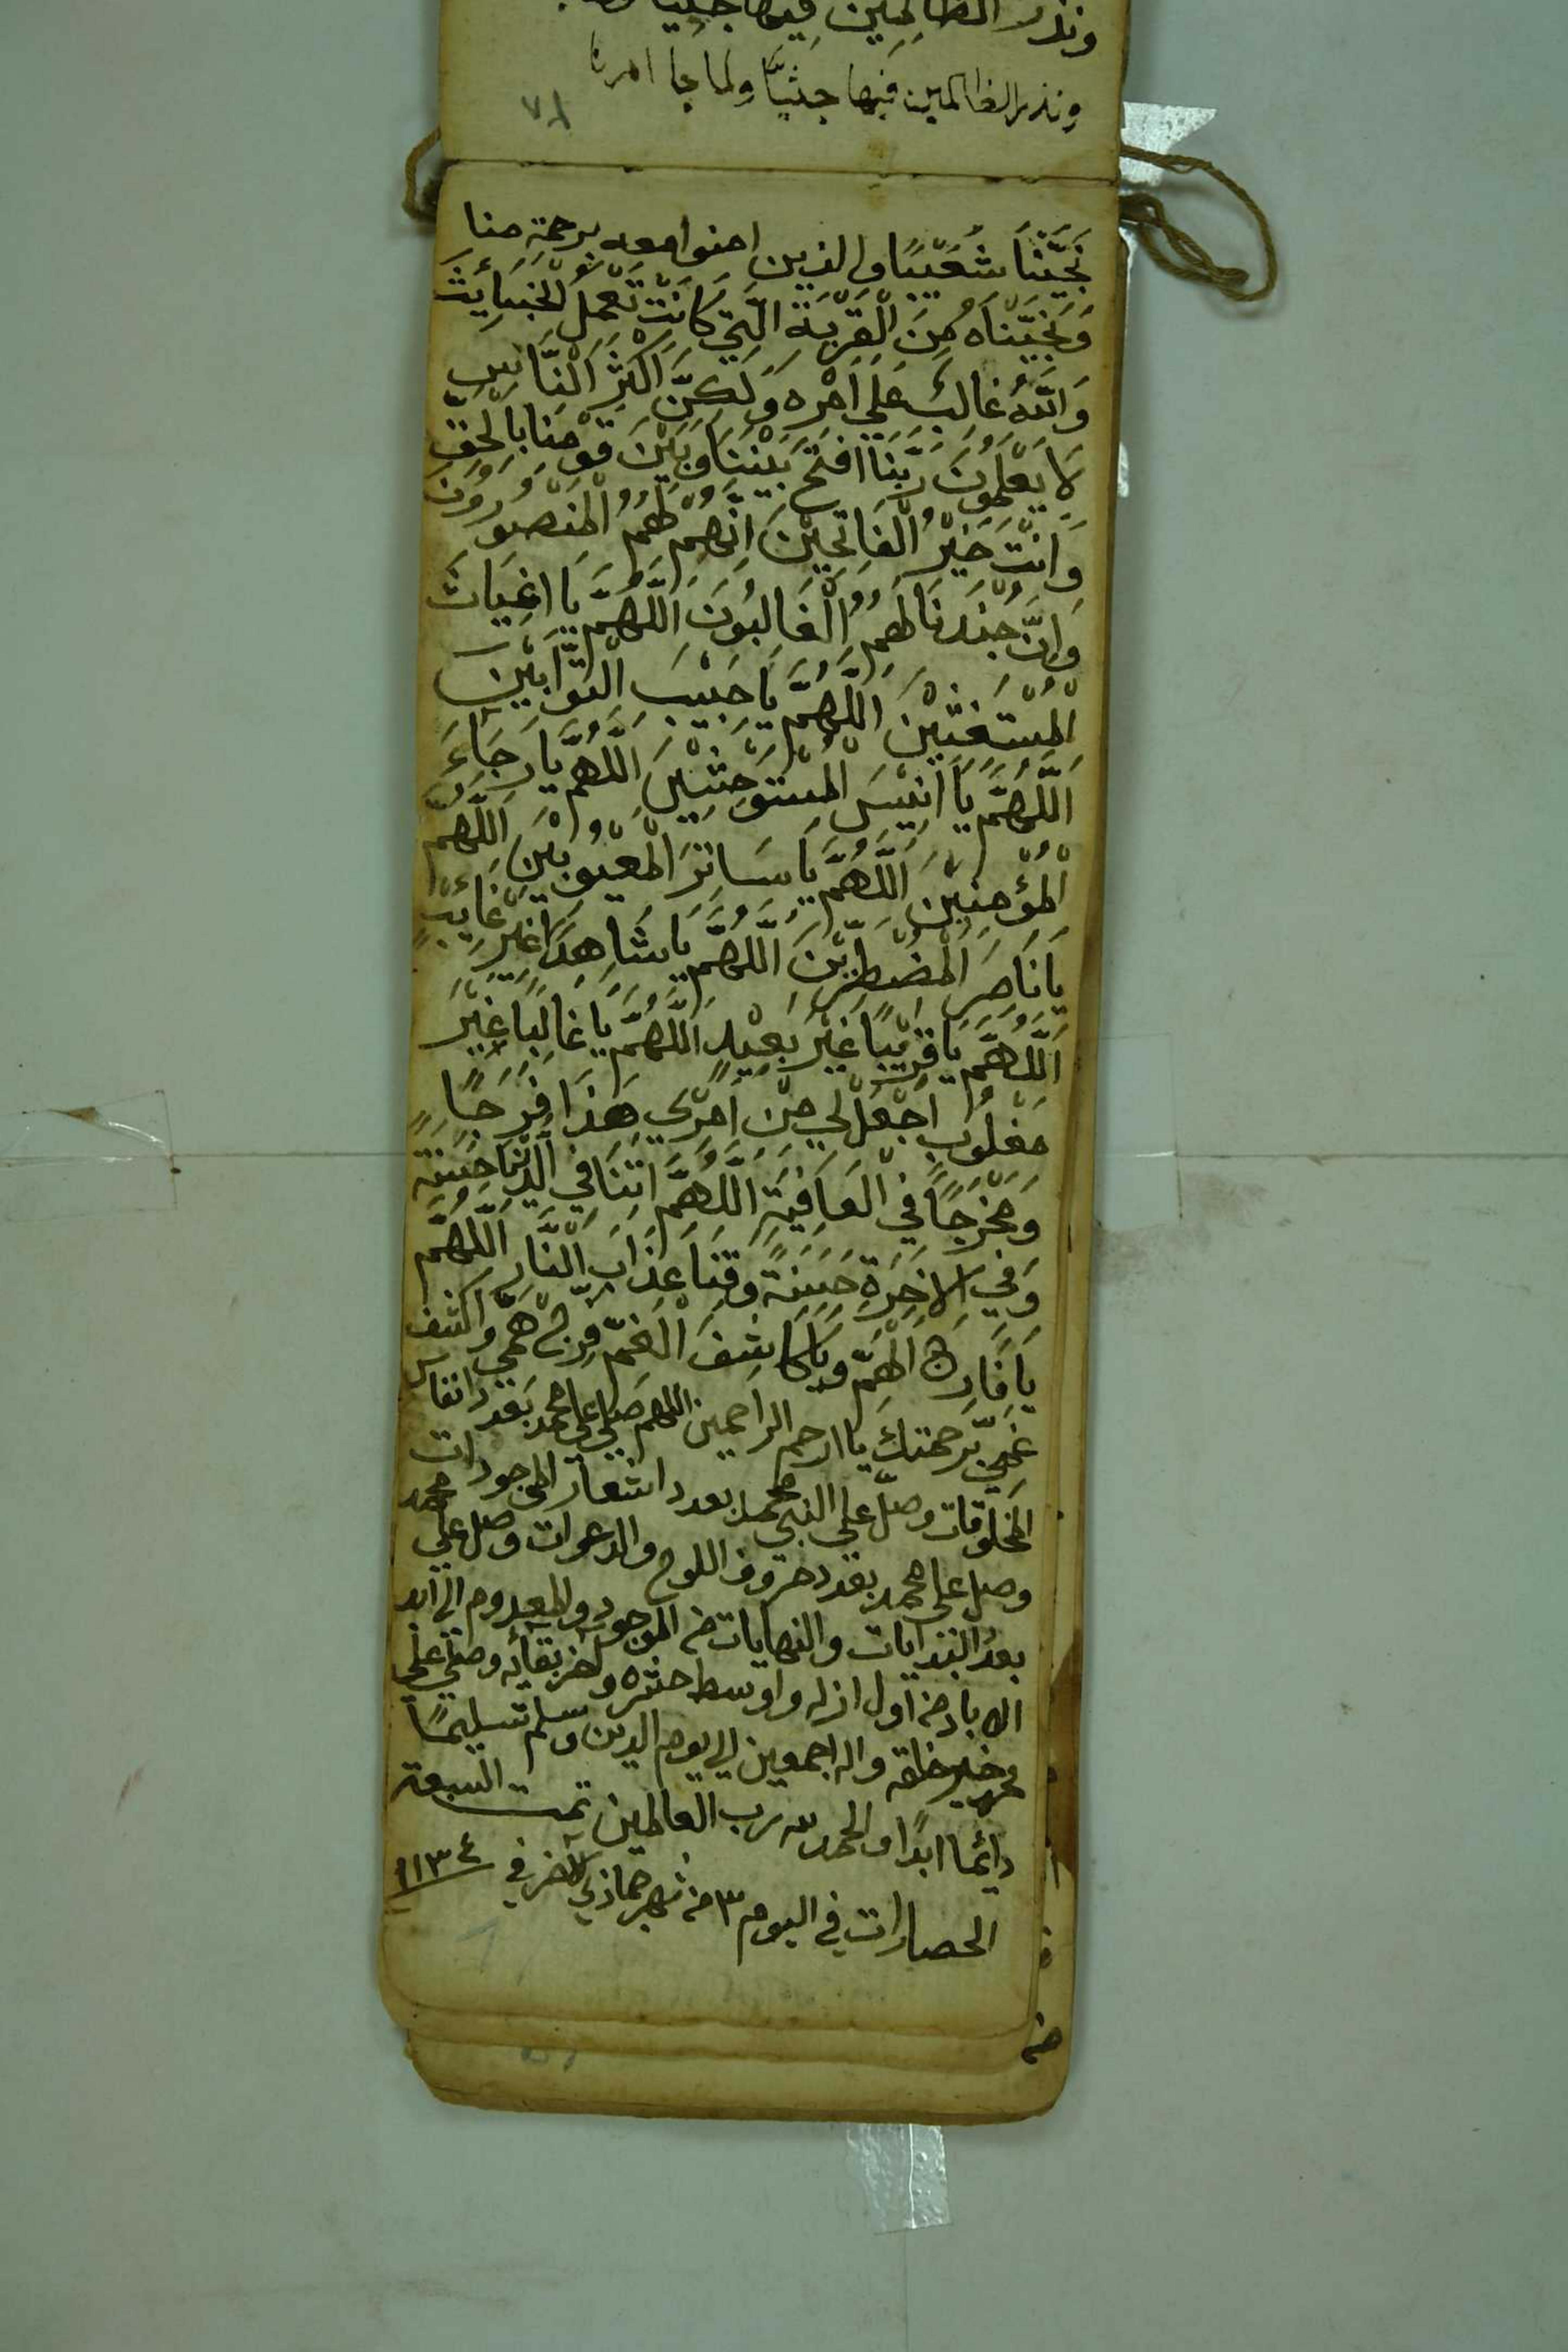 ونذر الظالمين فيها جثيا
ونذر الظالمين فيها جثيًّا ولما جا امرنا
٧٨
نَجَّيْنَا شُعَيْبًا والذين امنوا معه برحمةٍ منا
وَنَجَّيْنَاهُ مِنَ الْقَرْيَةِ الَّتِي كَانَتْ تَعْمَلُ الْخَبَائِثَ
وَاللّٰهُ غَالِبٌ عَلَى اَمْرِهِ وَلَكِنَّ اَكْثَرَ النَّاسِ
لَا يَعْلَمُونَ رَبَّنَا افْتَحْ بَيْنَنَا وَبَيْنَ قَوْمِنَا بِالْحَقِّ
وَاَنْتَ خَيْرُ الْفَاتِحِيْنَ اِنَّهُمْ لَهُمُ الْمَنْصُورُونَ
وَاِنَّ جُنْدَنَا لَهُمُ الْغَالِبُونَ اَللّٰهُمَّ يَا اغِيَاثَ
الْمُسْتَغِيْثِيْنَ اَللّٰهُمَّ يَا حَبِيْبَ التَّوَّابِيْنَ
اَللّٰهُمَّ يَا اَنِيْسَ الْمُسْتَوْحِشِيْنَ اَللّٰهُمَّ يَا رَجَاءَ
الْمُؤْمِنِيْنَ اَللّٰهُمَّ يَا سَاتِرَ الْمَعْيُوبِيْنَ اَللّٰهُمَّ
يَا نَاصِرَ الْمُضْطَرِّيْنَ اَللّٰهُمَّ يَا شَاهِدًا غَيْرَ غَائِبٍ
اَللّٰهُمَّ يَا قَرِيْبًا غَيْرَ بَعِيْدٍ اَللّٰهُمَّ يَا غَالِبًا غَيْرَ
مَغْلُوبٍ اجْعَلْ لِي مِنْ اَمْرِي هَذَا فَرَجًا
وَمَخْرَجًا فِي الْعَافِيَةِ اَللّٰهُمَّ اٰتِنَا فِي الدُّنْيَا حَسَنَةً
وَفِي الْاٰخِرَةِ حَسَنَةً وَقِنَا عَذَابَ النَّارِ اَللّٰهُمَّ
يَا فَارِجَ الْهَمِّ وَيَا كَاشِفَ الْغَمِّ فَرِّجْ هَمِّي وَاكْشِفْ
غَمِّي بِرَحْمَتِكَ يا ارحم الراحمين اللهم صلي علي محمد بعدد انفاس
المخلوقات وصلّ علي النبي محمد بعدد اشعار الموجودات
وصل علي محمد بعدد حروف اللوح والدعوات وصل علي محمد
بعدد البدايات والنهايات من الموجود والمعدوم الي ابد
الاباد من اول ازله واوسط حشره واخر بقائه وصلي علي
محمد خير خلقه واله اجمعين الي يوم الدين وسلم تسليمًا
دائما ابدًا والحمد لله رب العالمين تمت السبعة
الحصارات في اليوم ٣ من شهر جماذي الاخر في ١١٣٤